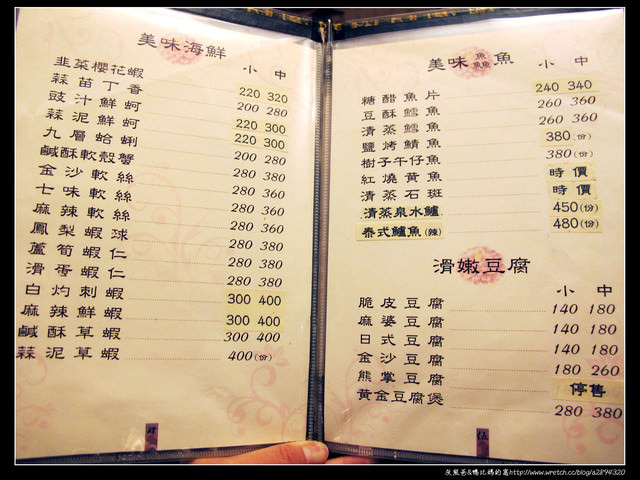 美味海鮮
小 中
韭菜櫻花蝦 220 320
蒜苗丁香 200 280
豉汁鮮蚵 220 300
蒜泥鮮蚵 220 300
九層蛤蜊 200 280
鹹酥軟殼蟹 280 380
金沙軟絲 280 360
七味軟絲 280 360
麻辣軟絲 280 360
鳳梨蝦球 280 380
蘆筍蝦仁 280 380
滑蛋蝦仁 280 380
白灼刺蝦 300 400
麻辣鮮蝦 300 400
鹹酥草蝦 300 400
蒜泥草蝦 400(份)
肆
美味鱻魚
小 中
糖醋魚片 240 340
豆酥鱈魚 260 360
清蒸鱈魚 260 360
鹽烤鯖魚 380(份)
樹子午仔魚 380(份)
紅燒黃魚 時價
清蒸石斑 時價
清蒸泉水鱸 450(份)
泰式鱸魚(辣) 480(份)
滑嫩豆腐
小 中
脆皮豆腐 140 180
麻婆豆腐 140 180
日式豆腐 140 180
金沙豆腐 180 260
熊掌豆腐 停售
黃金豆腐煲 280 380
伍
灰熊爸&鴨比媽的窩http://www.wretch.cc/blog/a2894320